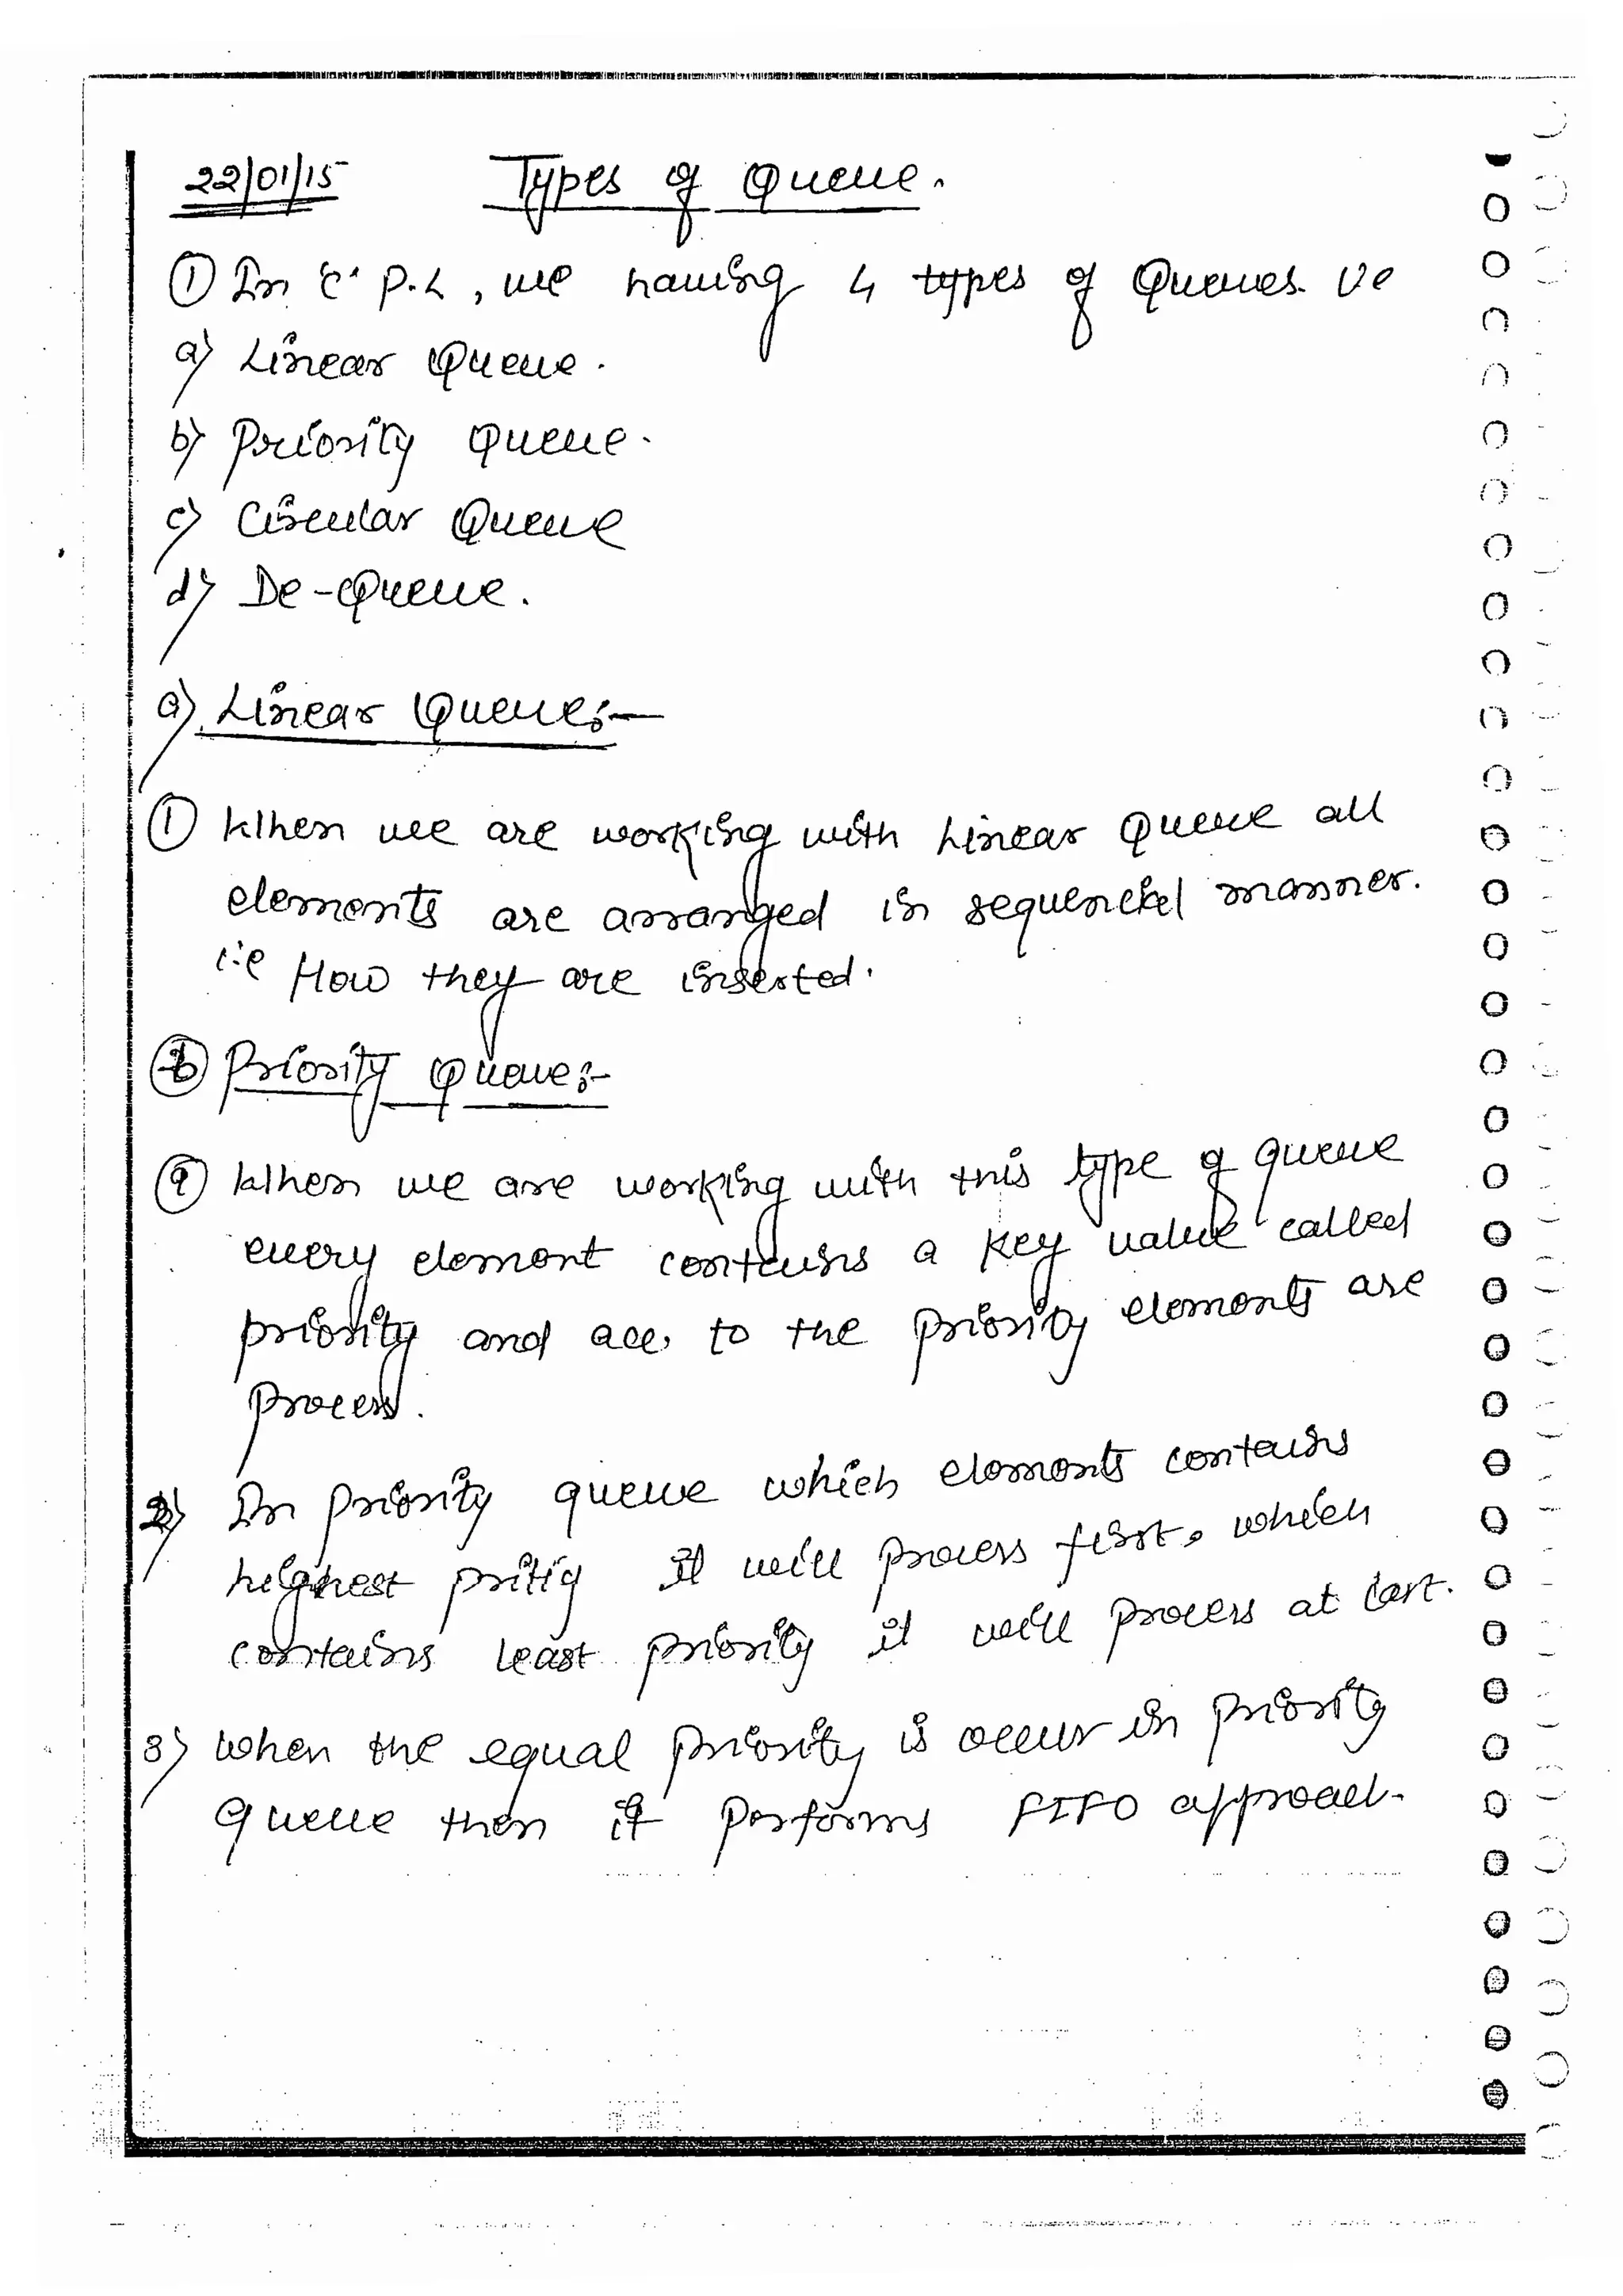 22/01/15 Types of Queue.
① In 'C' P.L, we having 4 types of Queues. i/e
a) Linear Queue.
b) Priority Queue.
c) Circular Queue
d) De-Queue.
a) Linear Queue:-
① When we are working with Linear Queue all
elements are arranged in sequencial manner.
i.e How they are inserted.
b) Priority Queue:-
① When we are working with this type of queue
every element contains a key value called
priority and acc. to the priority elements are
process.
2) In priority queue which elements contains
highest pritiy it will process first, which
contains least priority it will process at last.
3) When the equal priority is occur in priority
queue then it performs FIFO approach.